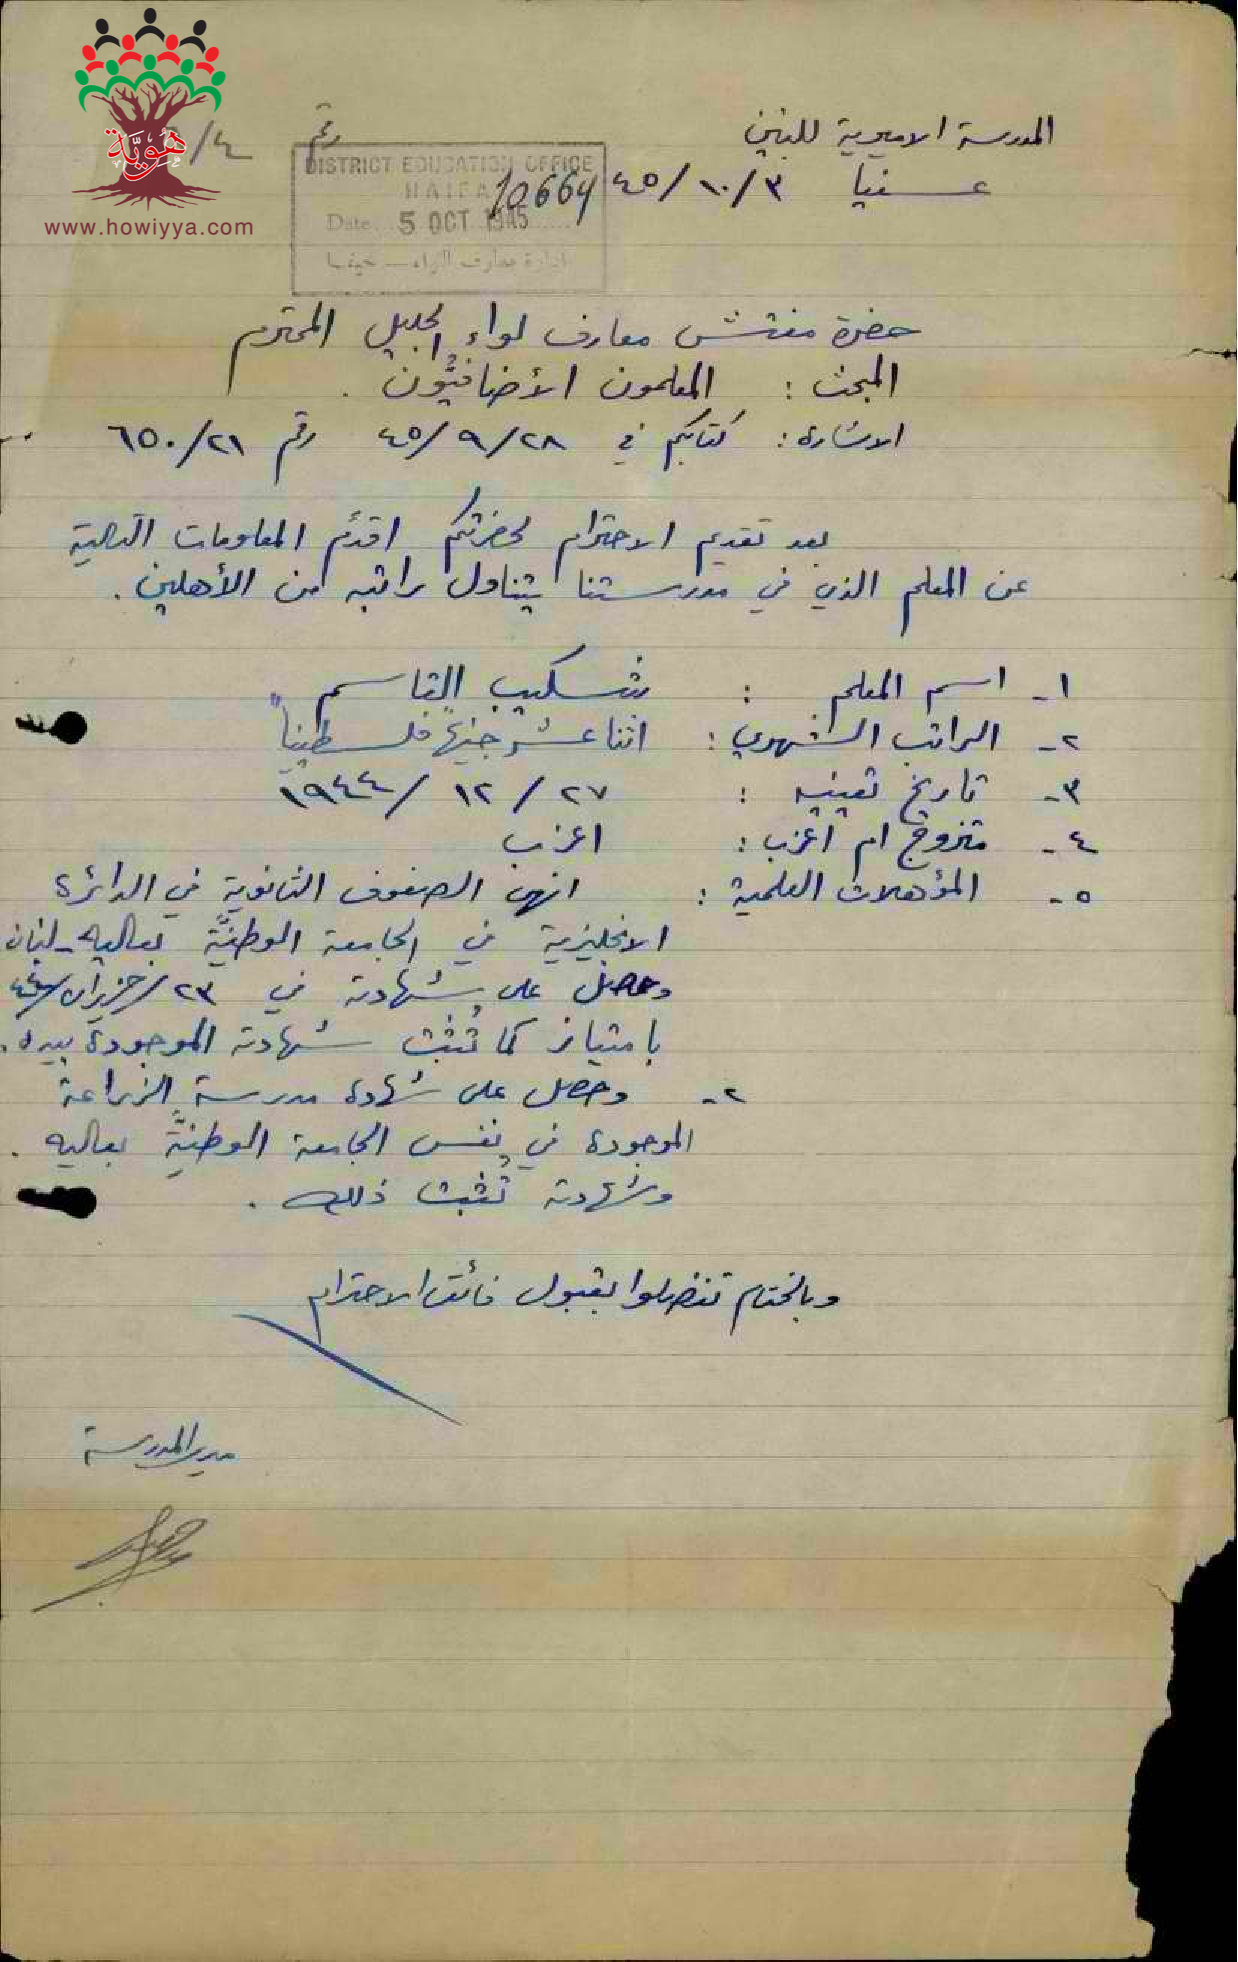 هُويَّة
www.howiyya.com
المدرسة الاميرية للبنين
رقم /٤
عسفيا ٣/١٠/٤٥
DISTRICT EDUCATION OFFICE
HAIFA
10664
Date 5 OCT 1945
ادارة معارف اللواء — حيفا
حضرة مفتش معارف لواء الجليل المحترم
المبحث : المعلمون الأضافيُّون .
الاشارة : كتابكم في ٢٨/٩/٤٥ رقم ٦٥٠/٢١
بعد تقديم الاحترام لحضرتكم اقدّم المعلومات التالية
عن المعلم الذي في مدرستنا يتناول راتبه من الأهلين .
١- اسم المعلم : شكيب القاسم
٢- الراتب الشهري : اثنا عشر جنيهاً فلسطينياً
٣- تاريخ تعيينه : ٢٧/١٢/١٩٤٤
٤- متزوج ام أعزب : اعزب
٥- المؤهلات العلمية : انهى الصفوف الثانوية في الدائرة
الانجليزية في الجامعة الوطنيَّة بعاليه - لبنان
وحصل على شهادته في ٢٣/حزيران/٤٤
بامتياز كما تُثبت شهادته الموجودة بيده .
٢- وحصل على شهادة مدرسة الزراعة
الموجودة في نفس الجامعة الوطنيَّة بعاليه .
وشهادته تُثبت ذلك .
وبالختام تفضلوا بقبول فائق الاحترام
مدير المدرسة